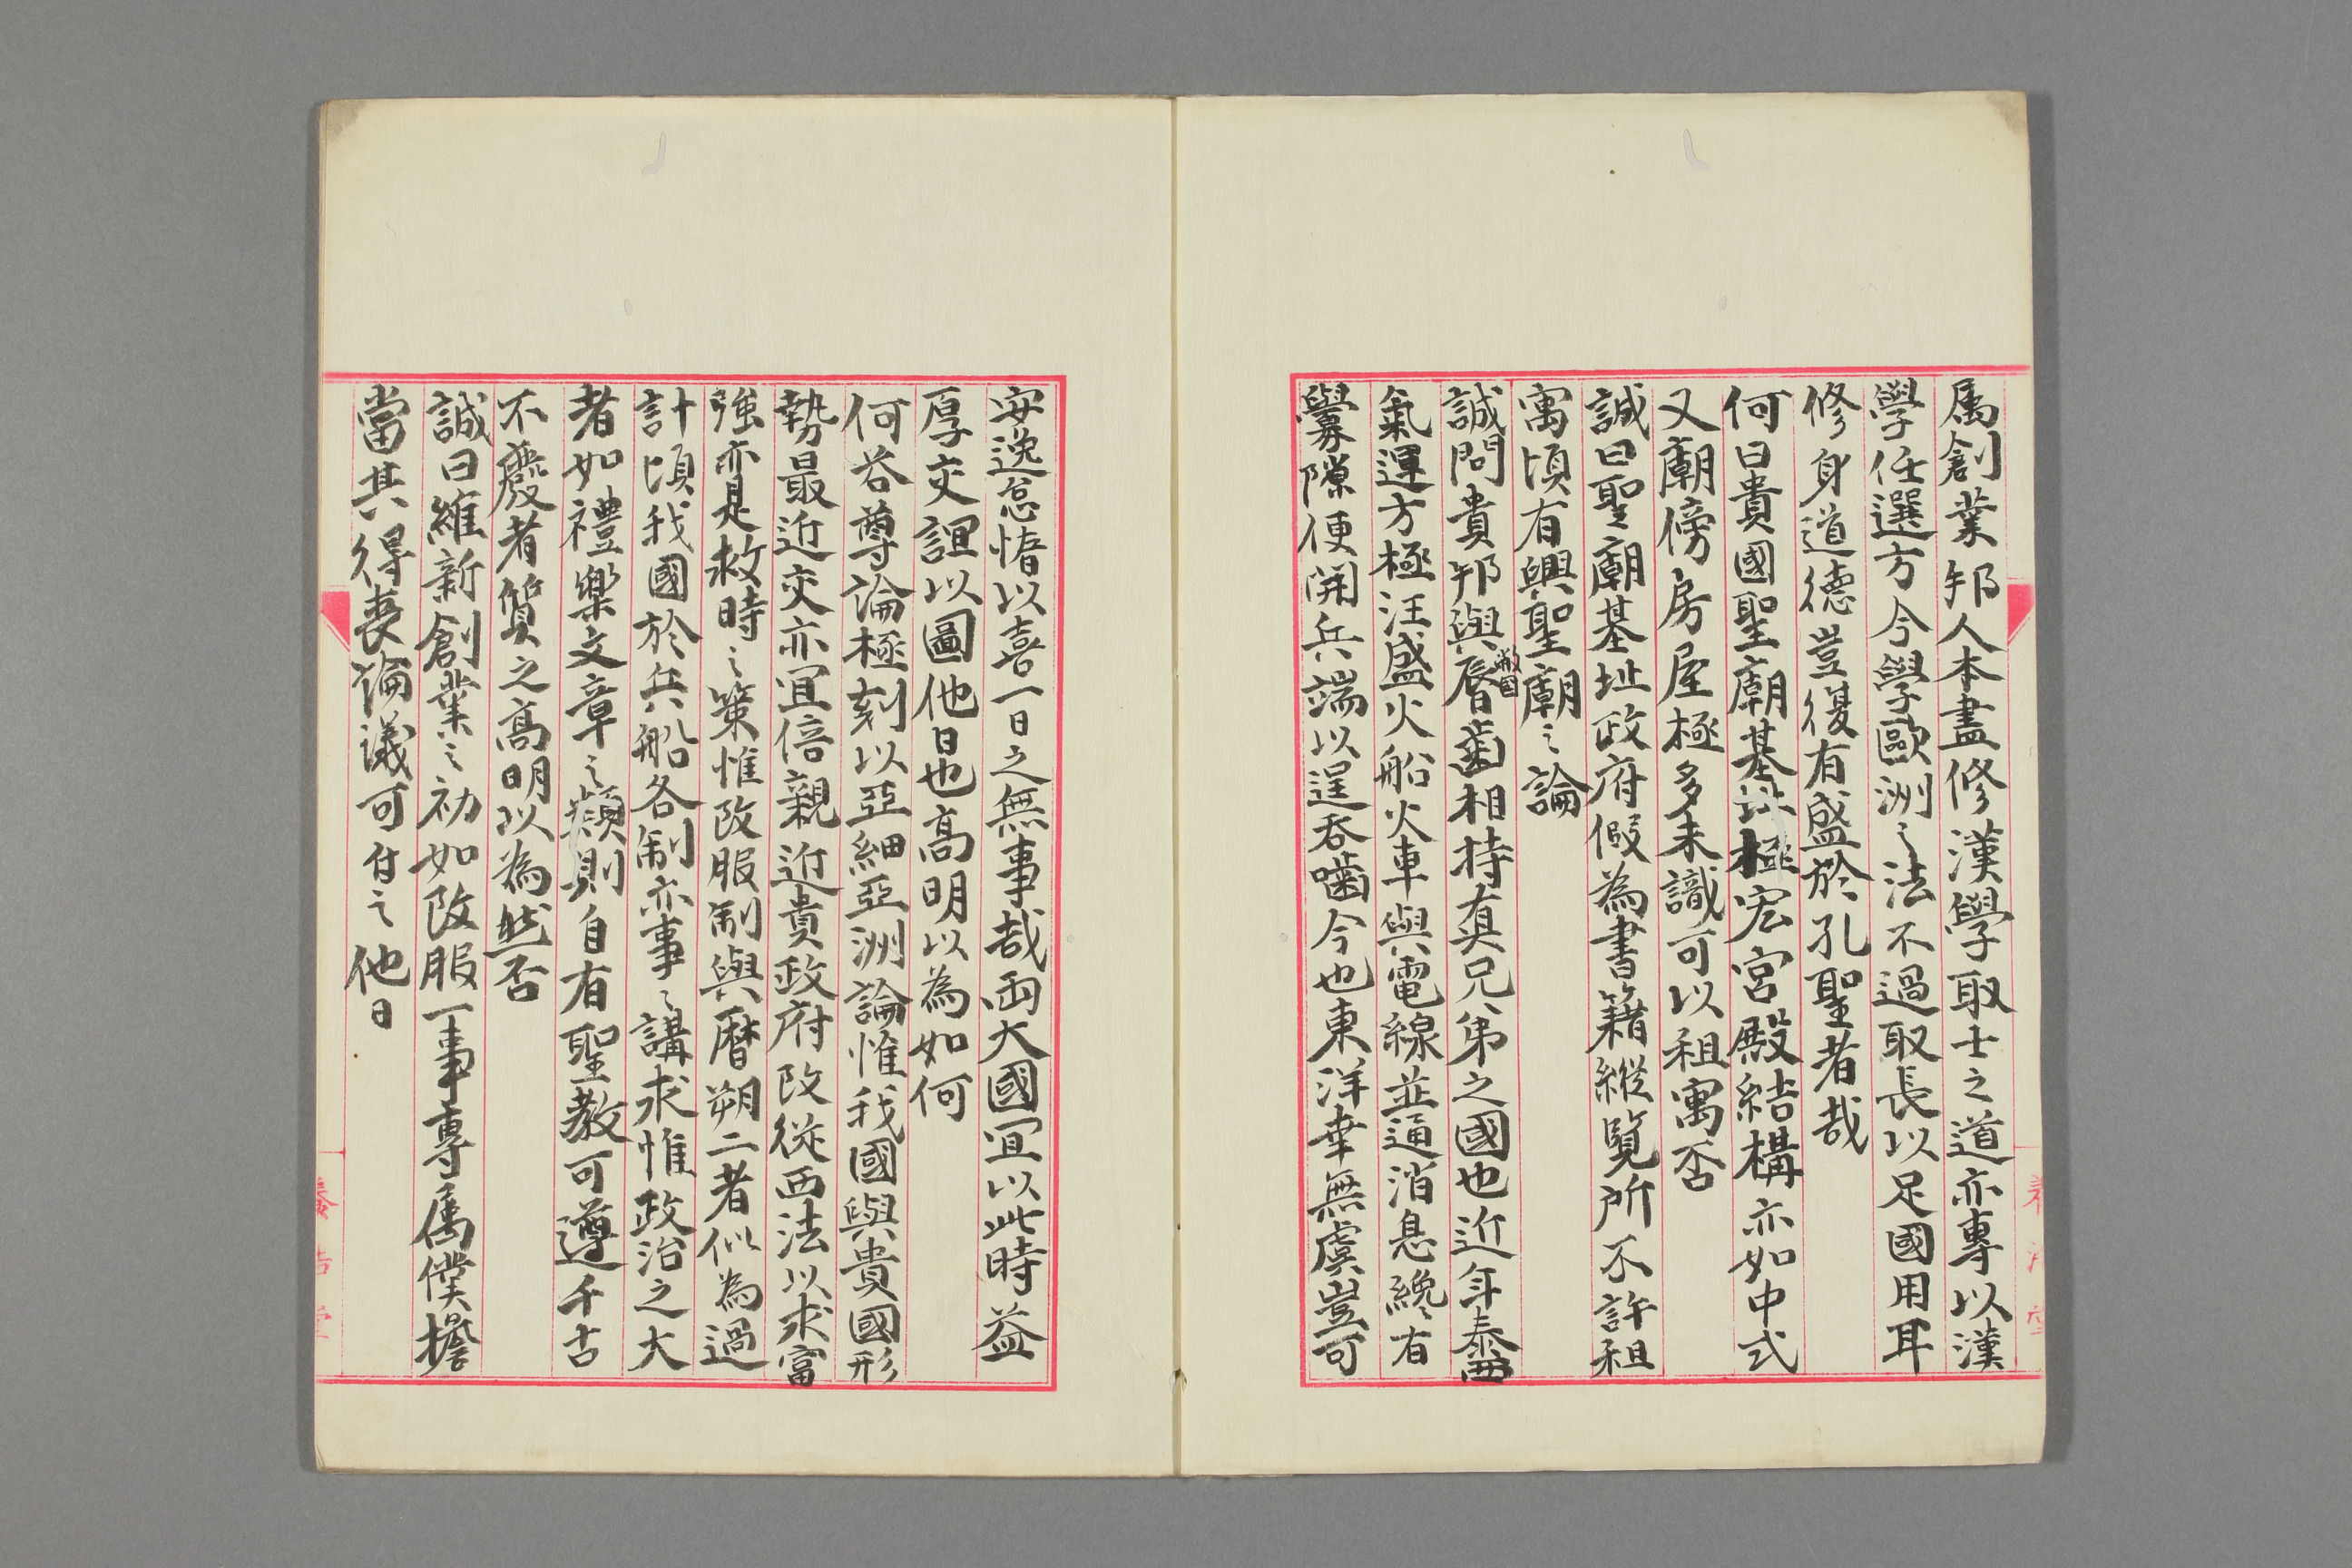 属創業邦人本盡修漢學取士之道亦專以漢
學任選方今學歐洲之法不過取長以足國用耳
修身道德豈復有盛於孔聖者哉
何曰貴國聖廟基址極宏宮殿結構亦如中式
又廟傍房屋極多未識可以租寓否
誠曰聖廟基址政府假為書籍縱覽所不許租
寓頃有興聖廟之論
誠問貴邦與敝國唇齒相持真兄弟之國也近年泰西
氣運方極汪盛火船火車與電線並通消息纔有
釁隙便開兵端以逞吞噬今也東洋幸無虞豈可
安逸怠惰以喜一日之無事哉兩大國宜以此時益
厚交誼以圖他日也高明以為如何
何答尊論極刻以亞細亞洲論惟我國與貴國形
勢最近交亦宜倍親近貴政府改從西法以求富
強亦是救時之策惟改服制與曆朔二者似為過
計頃我國於兵船各制亦事々講求惟政治之大
者如禮樂文章之類則自有聖教可遵千古
不廢者質之高明以為然否
誠曰維新創業之初如改服一事專属僕擔
當其得喪論議可付之他日